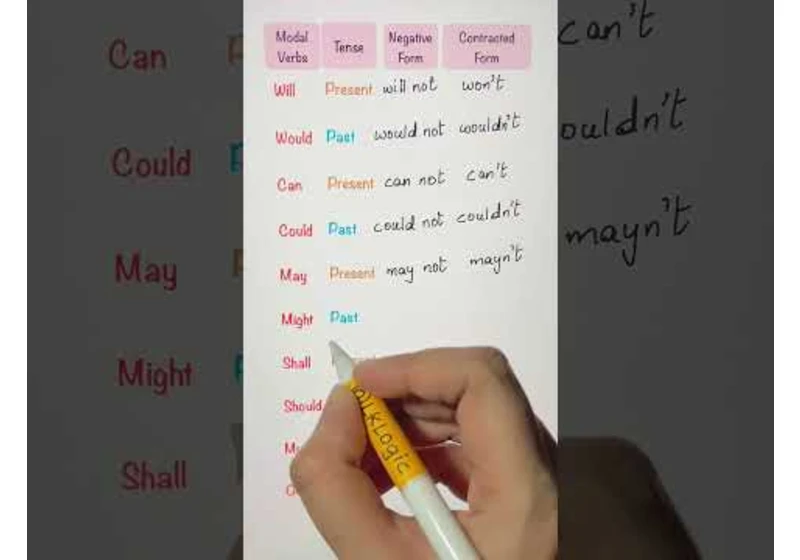 Modal Verbs Tense Negative Form Contracted Form
Will Present will not won't
Would Past would not wouldn't
Can Present can not can't
Could Past could not couldn't
May Present may not mayn't
Might Past
Shall
Should
TalkLogic
Can can't
Could ouldn't
May mayn't
Might
Shall